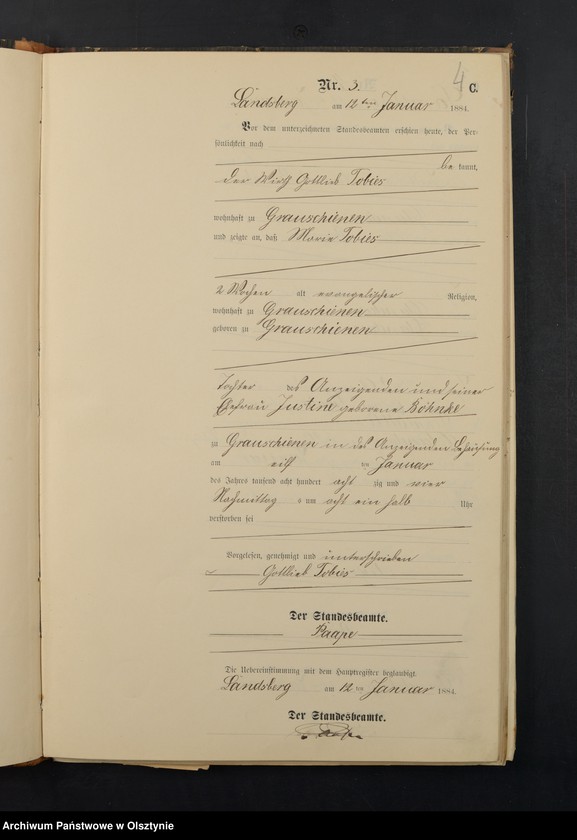 4
Nr. 3. C.
Landsberg am 12ten Januar 1884.
Vor dem unterzeichneten Standesbeamten erschien heute, der Per-
sönlichkeit nach
bekannt,
der Wirth Gottlieb Tobies
wohnhaft zu Grauschienen
und zeigte an, daß Marie Tobies
2 Wochen alt evangelischer Religion,
wohnhaft zu Grauschienen
geboren zu Grauschienen
Tochter des Anzeigenden und seiner
Ehefrau Justine geborene Böhnke
zu Grauschienen in des Anzeigenden Behausung
am elf ten Januar
des Jahres tausend acht hundert acht zig und vier
Nachmittag s um acht ein halb Uhr
verstorben sei
Vorgelesen, genehmigt und unterschrieben
Gottlieb Tobies
Der Standesbeamte.
Paape
Die Uebereinstimmung mit dem Hauptregister beglaubigt.
Landsberg am 12 ten Januar 1884.
Der Standesbeamte.
Archiwum Państwowe w Olsztynie